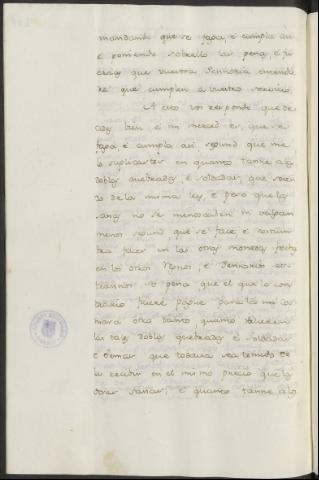 mandando que se faga, é cumpla asi
é poniendo sobrello las penas, é pre
cesos que vuestra Sennoria entende
re que cumplen á vuestro servicio.
A esto vos respondo que de
cides bien é mi merced es, que se
faga é cumpla asi segund que me
lo suplicastes en quanto tanne á las
doblas quebradas, é soldadas, que seien
do de la misma ley, é pero que las
sanas no se menoscaben ni valgan
menos segund que se face é costum
bra facer en las otras monedas fechas
en los otros Regnos, é Sennorios es
trannos, so pena que el que lo con
trario ficiere pague para la mi ca
mara otro tanto quanto valieren
las tales doblas quebradas é soldadas
é demas que todavia sea tenudo de
las recebir en el mismo precio que las
otras sanas; é quanto tanne á lo